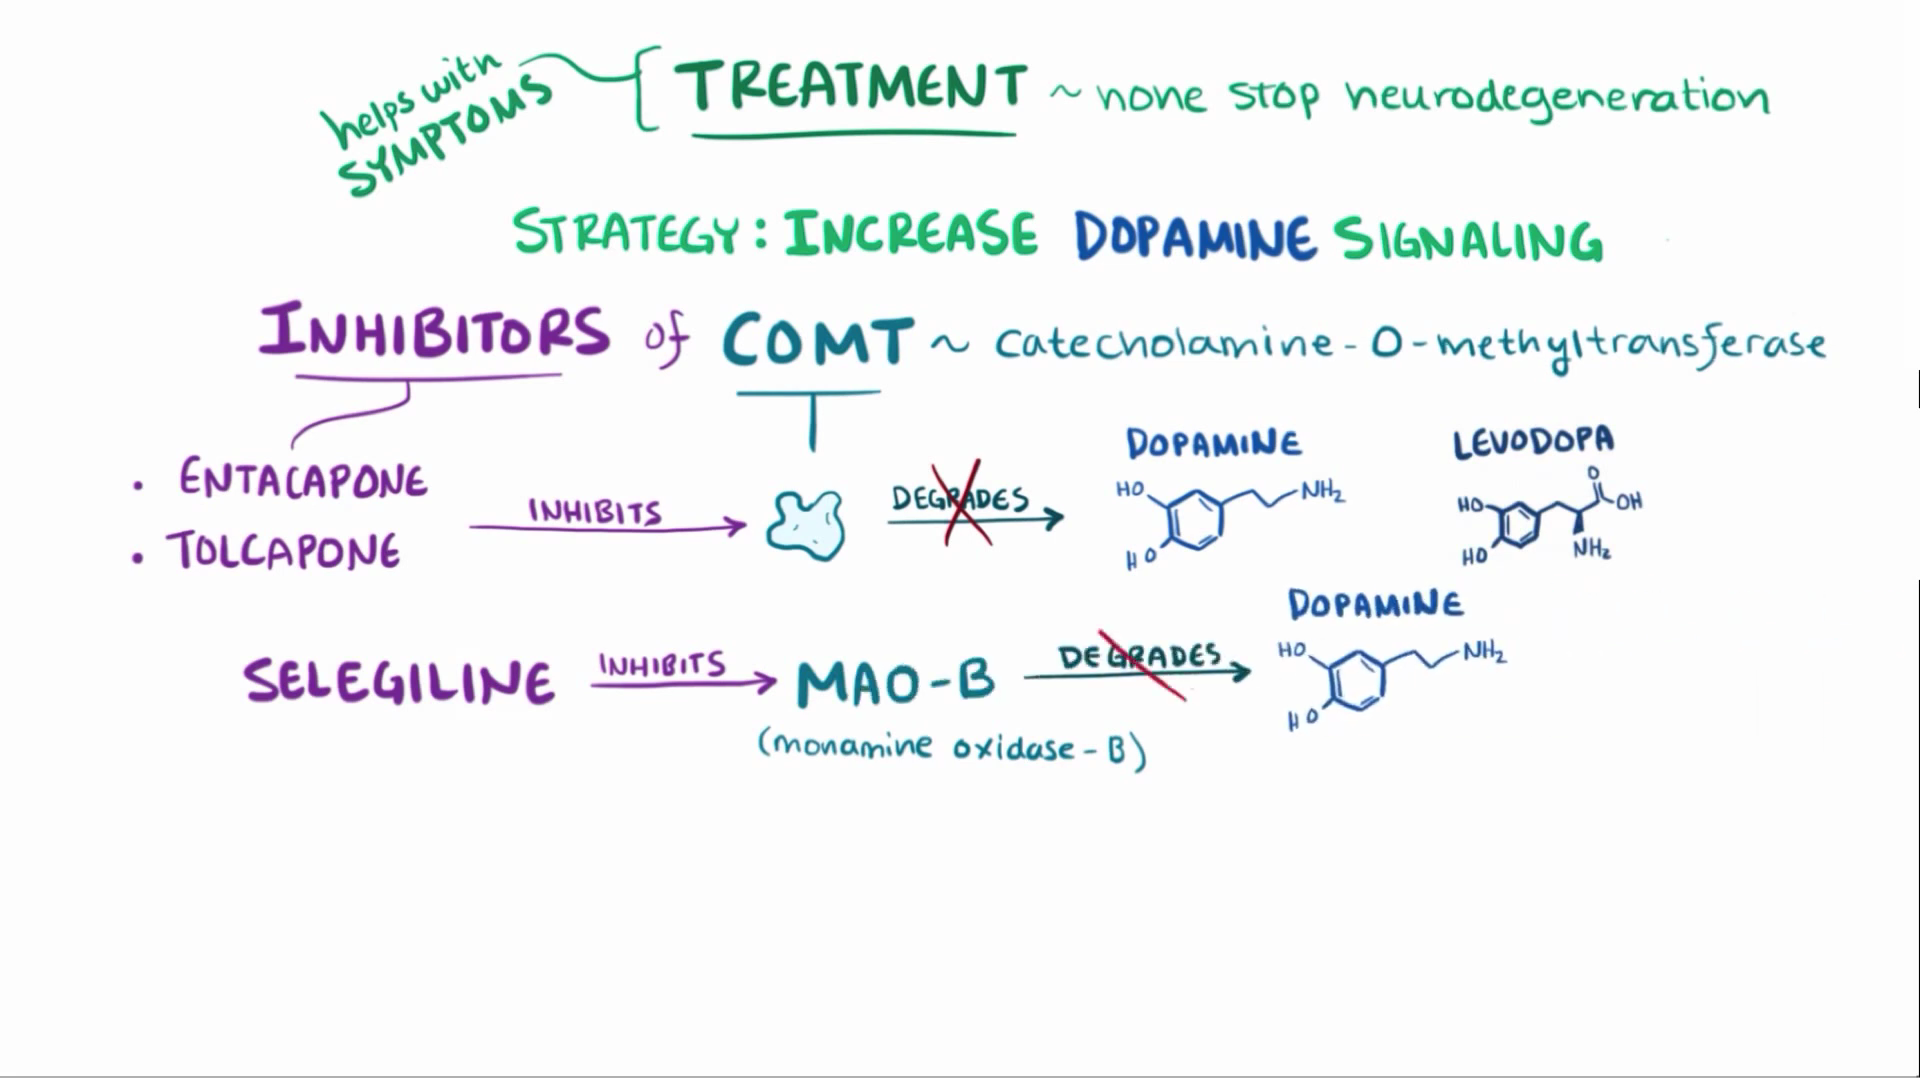 helps with
SYMPTOMS
TREATMENT ~ none stop neurodegeneration
STRATEGY: INCREASE DOPAMINE SIGNALING
INHIBITORS of COMT ~ catecholamine-O-methyltransferase
• ENTACAPONE
• TOLCAPONE
INHIBITS
DEGRADES
DOPAMINE
HO
NH2
HO
LEVODOPA
O
HO
OH
HO
NH2
SELEGILINE INHIBITS MAO-B DEGRADES
(monamine oxidase-B)
DOPAMINE
HO
NH2
HO